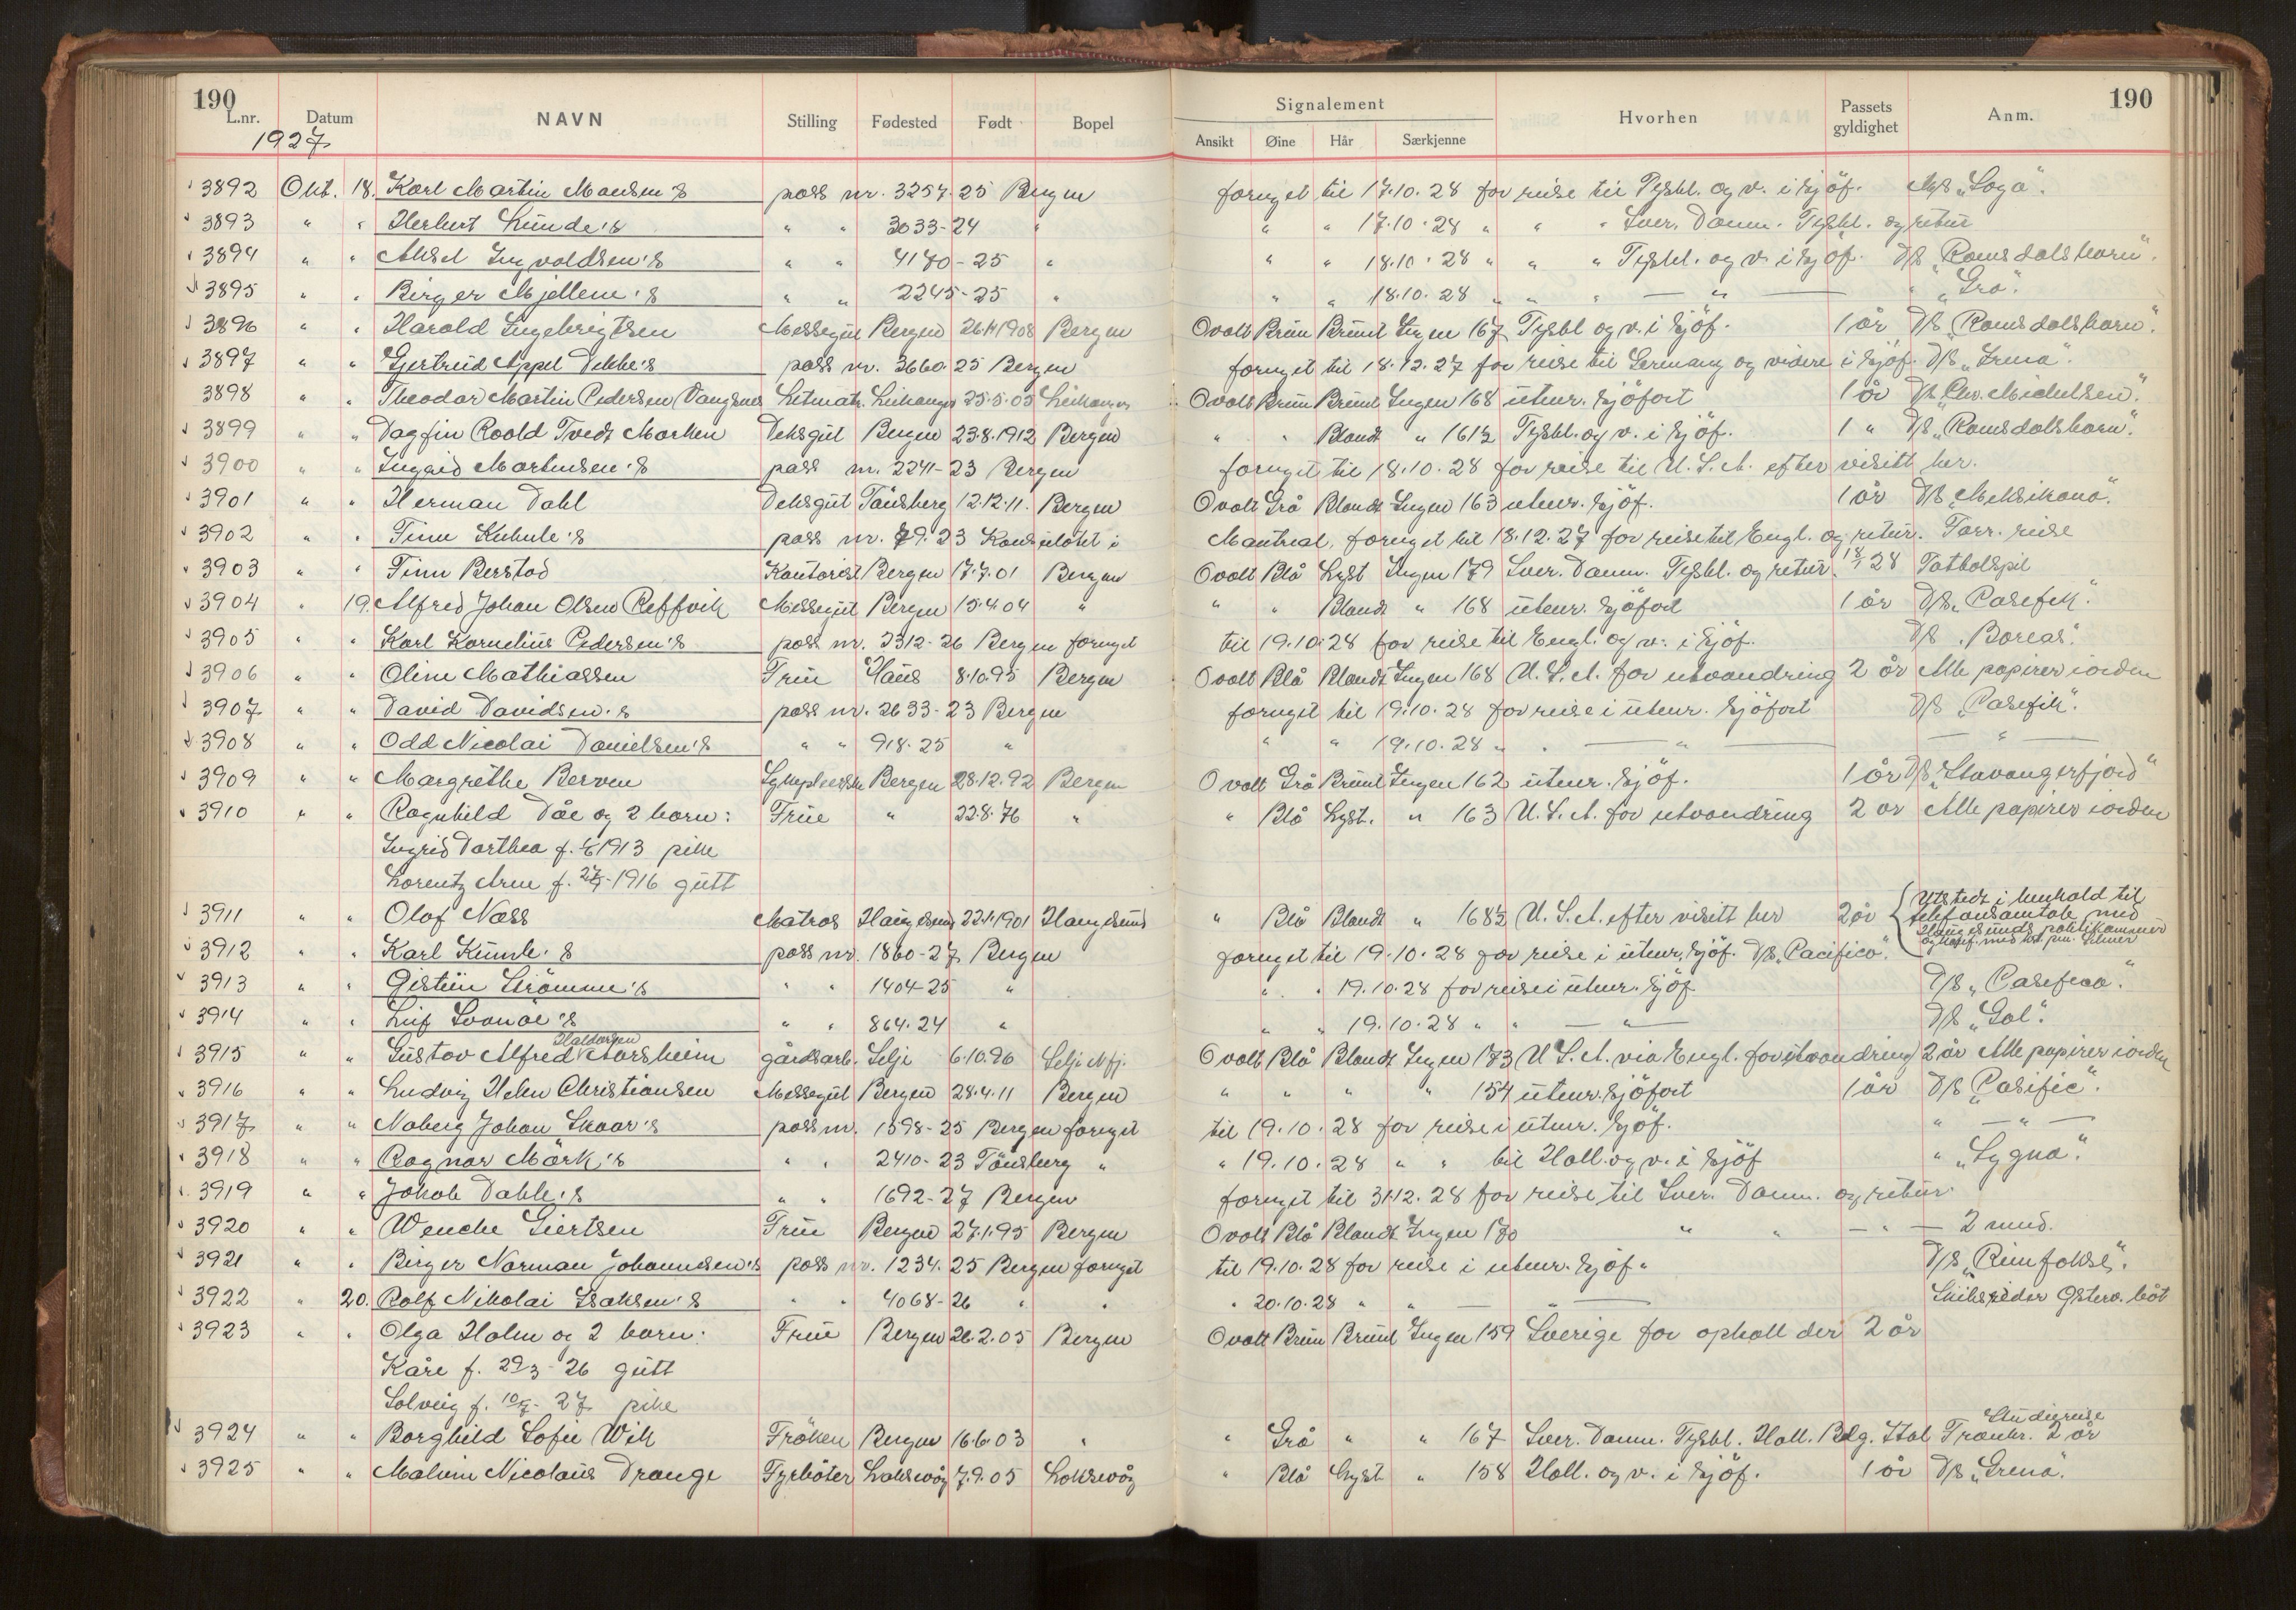 190 190
L.nr. Datum NAVN Stilling Fødested Født Bopel Signalement Hvorhen Passets gyldighet Anm.
Ansikt Øine Hår Særkjenne
1927
3892 Okt. 18. Karl Martin Madsen's pass nr. 3257-25 Bergen fornyet til 17.10.28 for reise til Tyskl. og v. i sjöf. M/S "Loga".
3893 " " Herbert Lunde's " " 3033-24 " " " 17.10.28 " " " Sver. Danm. Tyskl. og retur
3894 " " Aksel Ingvaldsen's " " 4180-25 " " " 18.10.28 " " " Tyskl. og v. i sjöf. D/S "Romsdalshorn".
3895 " " Birger Mjellem's " " 2245-25 " " " 18.10.28 " " " — " — " "Gro".
3896 " " Harald Ingebrigtsen Messegut Bergen 26.11.1908 Bergen Ovalt Brun Brunt Ingen 167 Tyskl og v. i sjöf. 1 år D/S "Romsdalshorn".
3897 " " Gjertrud Appel Dekke's pass nr. 3660-25 Bergen fornyet til 18.12.27 for reise til Germany og videre i sjöf. D/S "Grena".
3898 " " Theodor Martin Pedersen Vangsnes Letmatr. Leikanger 25.5.05 Leikanger Ovalt Brun Brunt Ingen 168 utenr. sjöfart 1 år D/S "Chr. Michelsen".
3899 " " Dagfin Roald Tvedt Marken Deksgut Bergen 23.8.1912 Bergen " " Blondt " 161½ Tyskl. og v. i sjöf. 1 " D/S "Romsdalshorn".
3900 " " Ingrid Martinsen's pass nr. 2241-23 Bergen fornyet til 18.10.28 for reise til U.S.A. efter visitt her.
3901 " " Herman Dahl Deksgut Tönsberg 12.12.11. Bergen Ovalt Grå Blondt Ingen 163 utenr. sjöf. 1 år D/S "Meksikano".
3902 " " Finn Kuhnle's pass nr. 79.23 Konsulatet i Montreal, fornyet til 18.12.27 for reise til Engl. og retur. Forr. reise
3903 " " Finn Berstad Kontorist Bergen 17.7.01 Bergen Ovalt Blå Lyst Ingen 179 Sver. Danm. Tyskl. og retur. 18/1 28 Fotbolspil
3904 " 19. Alfred Johan Olsen Reffvik Messegut Bergen 15.4.04 " " " Blondt " 168 utenr. sjöfart 1 år D/S "Pasefik".
3905 " " Karl Kornelius Pedersen's pass nr. 2312-26 Bergen fornyet til 19.10.28 for reise til Engl. og v. i sjöf. D/S "Boreas".
3906 " " Oline Mathiassen Frue Haus 8.10.95 Bergen Ovalt Blå Blondt Ingen 168 U.S.A. for utvandring 2 år Alle papirer i orden
3907 " " David Davidsen's pass nr. 2633-23 Bergen fornyet til 19.10.28 for reise i utenr. sjöfart D/S "Pasefik".
3908 " " Odd Nicolai Danielsen's " " 918-25 " " " 19.10.28 " " — " — — " —
3909 " " Margrethe Berven Sykepleierske Bergen 28.12.92 Bergen Ovalt Grå Brunt Ingen 162 utenr. sjöf. 1 år D/S "Stavangerfjord"
3910 " " Ragnhild Dåe og 2 barn: Frue " 22.8.76 " " Blå Lyst. " 163 U.S.A. for utvandring 2 år Alle papirer i orden
Ingrid Dorthea f. 1913 pike
Lorentz Arne f. 27/7-1916 gutt
3911 " " Olaf Næss Matros Haugesund 22.11.1901 Haugesund " Blå Blondt " 168½ U.S.A. efter visitt her 2 år Utstedt i henhold til
telefonsamtale med
Haugesunds politikammer
3912 " " Karl Kuhnle's pass nr. 1860-27 Bergen fornyet til 19.10.28 for reise i utenr. sjöf. D/S "Pacifico".
3913 " " Gistein Strömme's " " 1404-25 " " " 19.10.28 for reise i utenr. sjöf D/S "Pasefico".
3914 " " Leif Svanöe's " " 864-24 " " " 19.10.28 " " — " — D/S "Gol".
3915 " " Gustav Alfred Haldorsen Aarsheim gårdsarb. Selje 6.10.96 Selje Nfj. Ovalt Blå Blondt Ingen 183 U.S.A. via Engl. for utvandring 2 år Alle papirer i orden
3916 " " Ludvig Holm Christiansen Messegut Bergen 28.4.11 Bergen " " " " 154 utenr. sjöfart 1 år D/S "Pasific".
3917 " " Noberg Johan Skaar's pass nr. 1598-25 Bergen fornyet til 19.10.28 for reise i utenr. sjöf. " — " —
3918 " " Ragnar Mörk's " " 2410-23 Tönsberg " " 19.10.28 " " til Holl. og v. i sjöf " "Lygna".
3919 " " Jakob Dahle's " " 1692-27 Bergen fornyet til 31.12.28 for reise til Sver. Danm. og retur
3920 " " Wenche Giertsen Frue Bergen 27.1.95 Bergen Ovalt Blå Blondt Ingen 170 " " — " — 2 mnd.
3921 " " Birger Norman Johannesen's pass nr. 1234-25 Bergen fornyet til 19.10.28 for reise i utenr. sjöf. D/S "Rimfakse".
3922 " 20. Rolf Nikolai Isaksen's " " 4068-26 " " " 20.10.28 " " — " — Skibsreder Osterv. båt
3923 " " Olga Holm og 2 barn: Frue Bergen 26.2.05 Bergen Ovalt Brun Brunt Ingen 159 Sverige for ophold der 2 år
Kåre f. 29/3-26 gutt
Solveig f. 10/7-27 pike
3924 " " Borghild Sofie Wik Fröken Bergen 16.6.03 " " Grå " " 167 Sver. Danm. Tyskl. Holl. Belg. Ital Frankr. Studiereise 2 år
3925 " " Malvin Nicolaus Drange Fyrböter Laksevåg 7.9.05 Laksevåg " Blå Lyst " 158 Holl. og v. i sjöf. 1 år D/S "Grena".